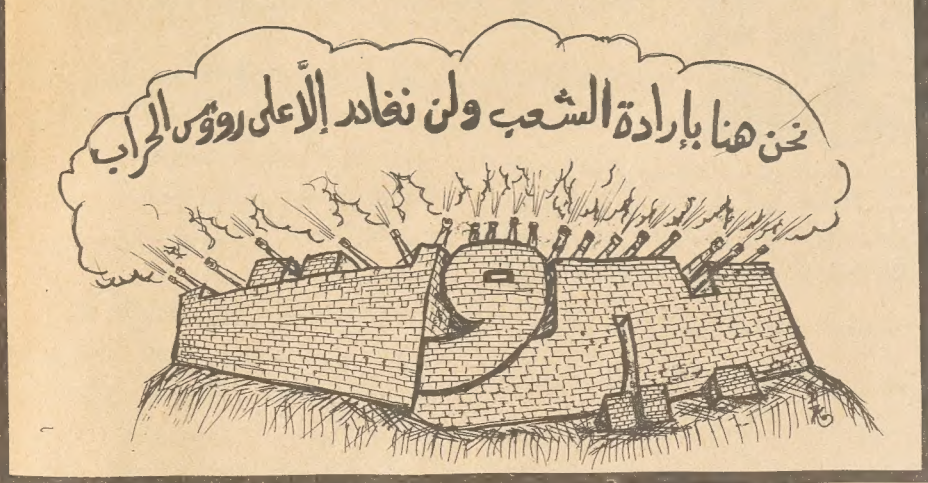 نحن هنا بإرادة الشعب ولن نغادر إلَّا على رؤوس الحراب